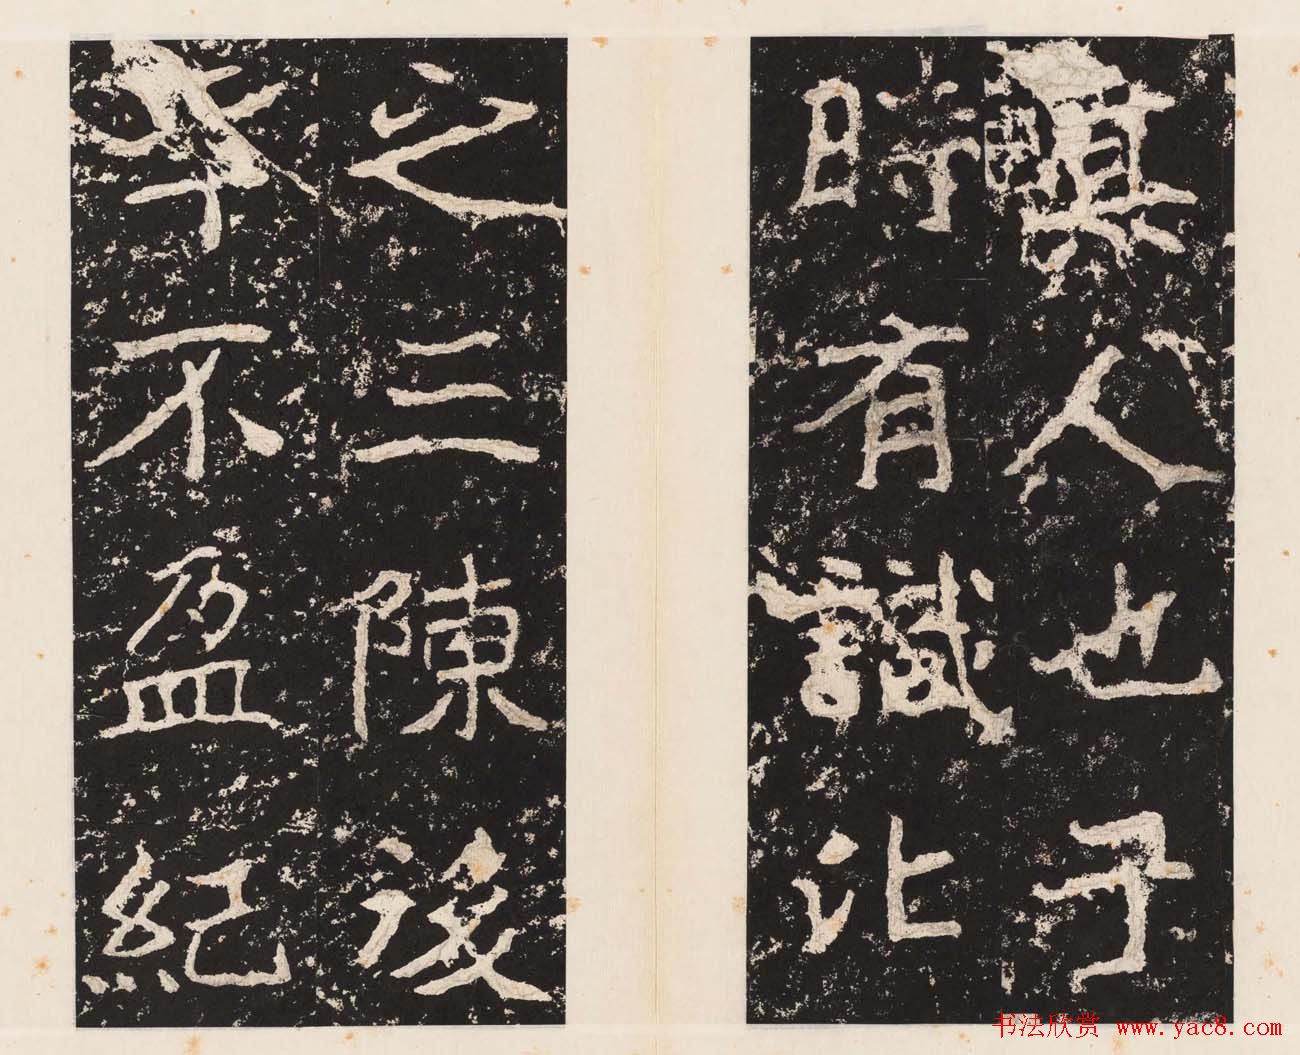 真人也于
時有識沚
之三陳後
年不盈紀
书法欣赏 www.yac8.com